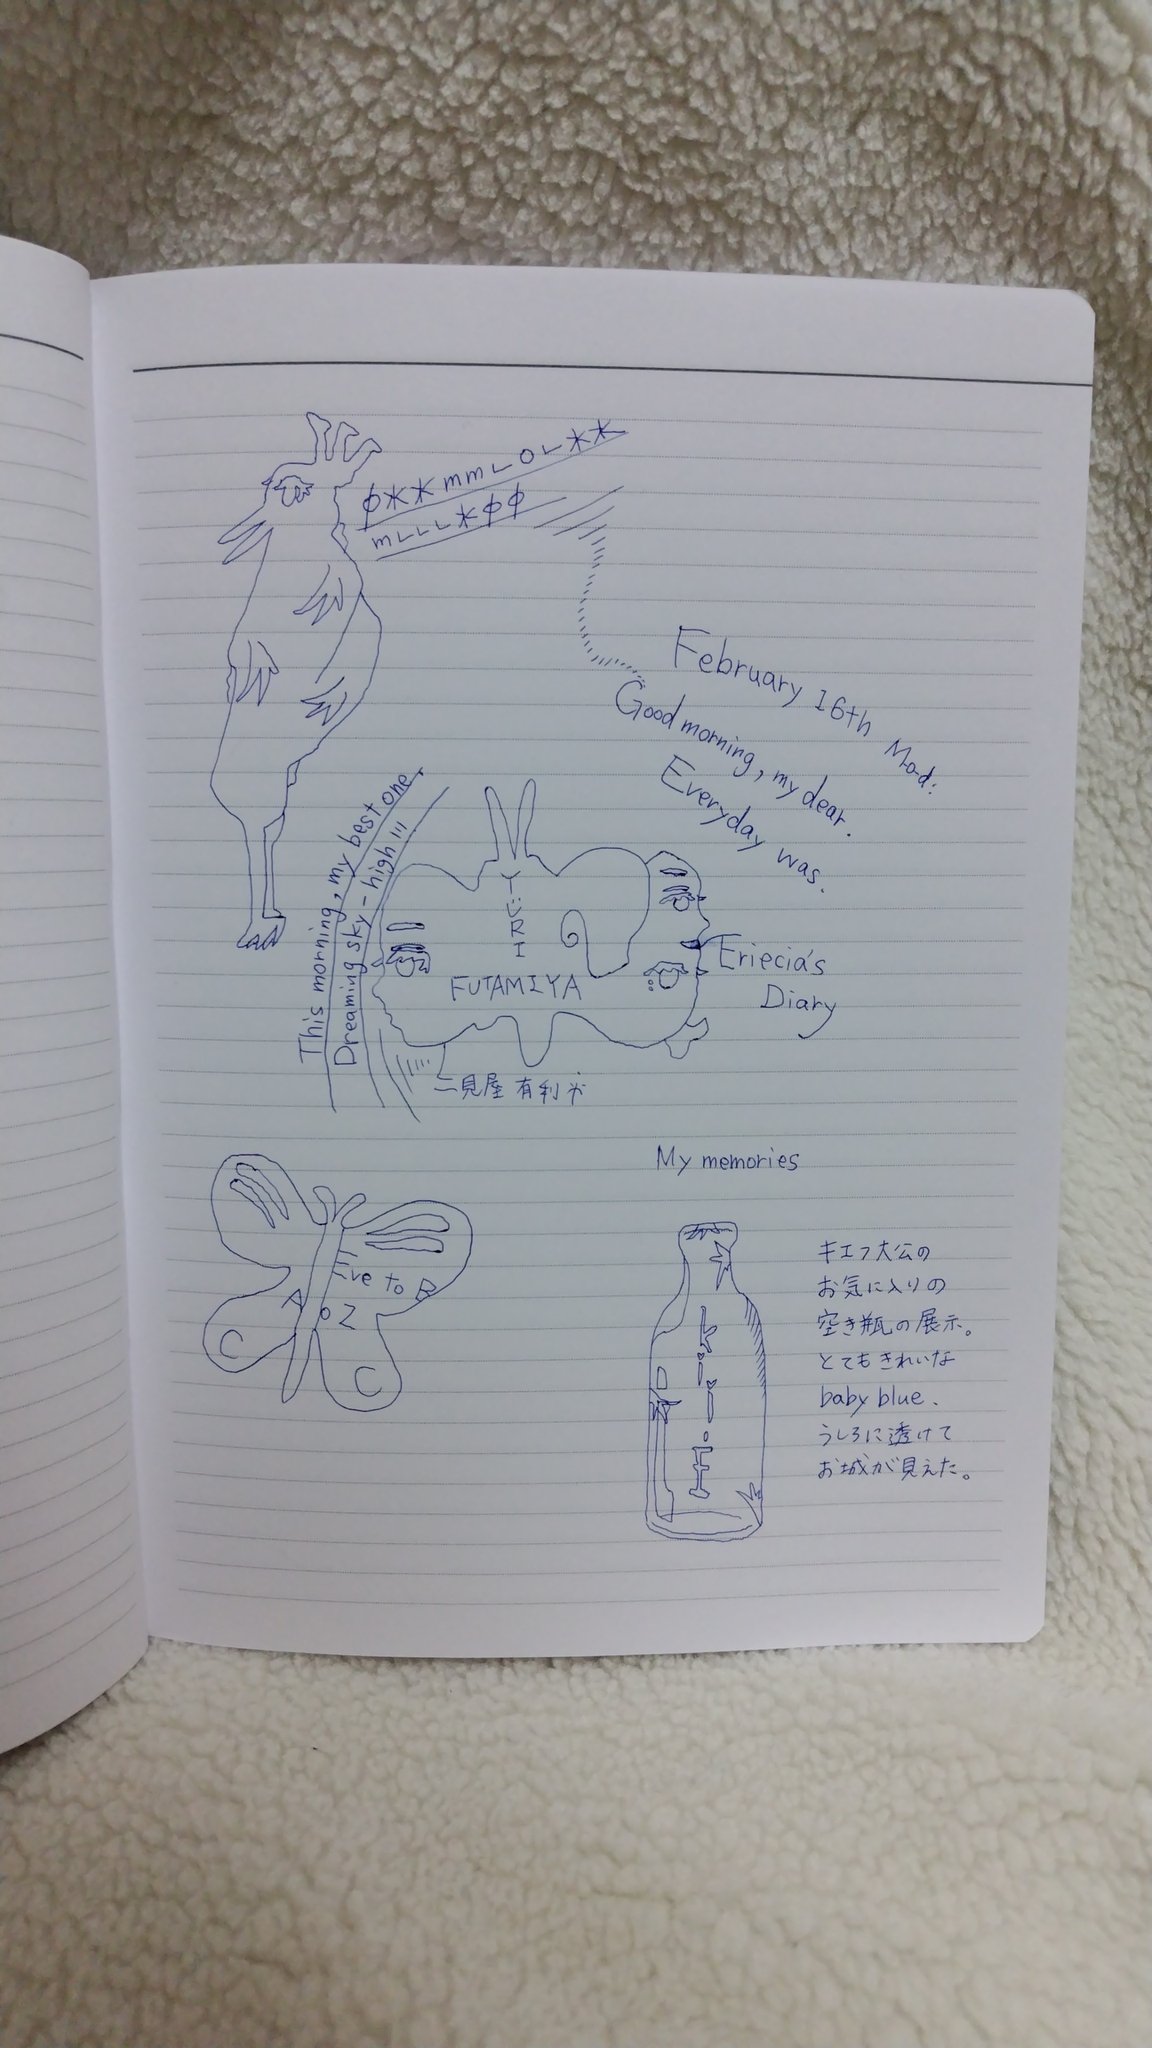 February 16th
Good morning, my dear.
Everyday was.
This morning, my best one.
Dreaming sky-high!!!
YURI
FUTAMIYA
Eriecia's
Diary
二見屋 有利
Eve to B
A
Z
C
C
My memories
キエフ大公の
お気に入りの
空き瓶の展示。
とてもきれいな
baby blue.
うしろに透けて
お城が見えた。